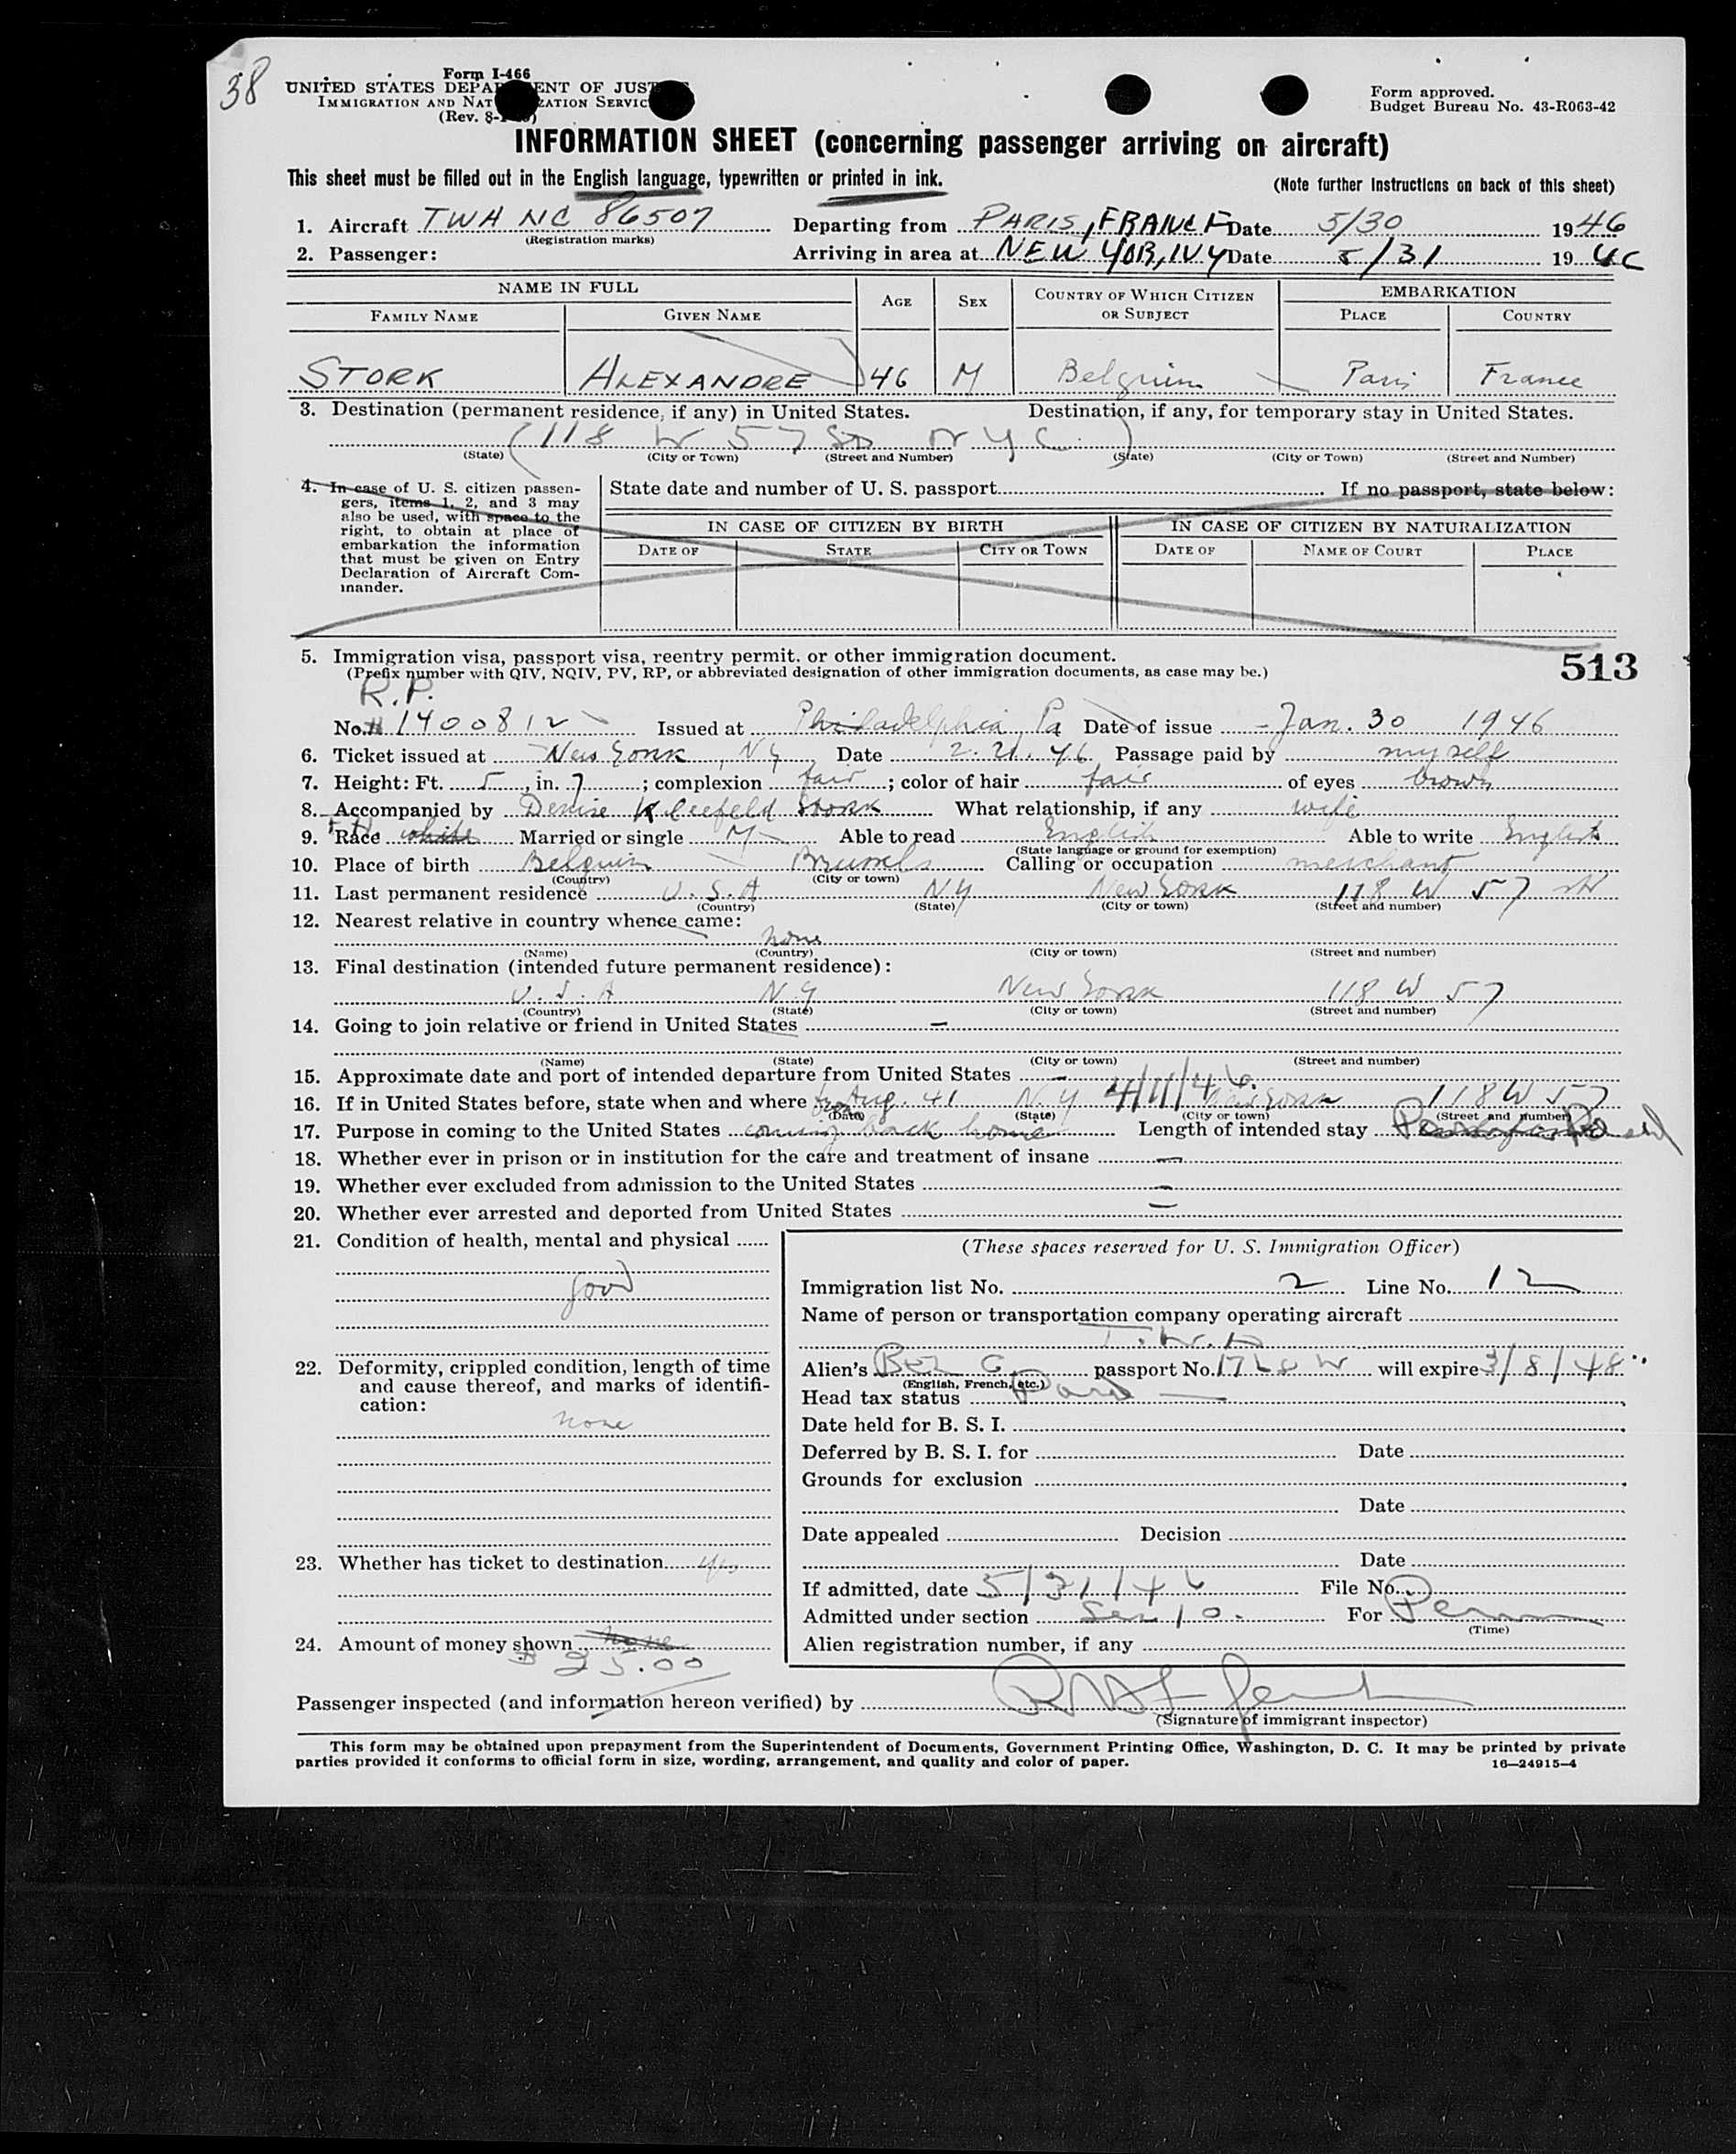 38
Form I-466
UNITED STATES DEPARTMENT OF JUSTICE
IMMIGRATION AND NATURALIZATION SERVICE
(Rev. 8-
Form approved.
Budget Bureau No. 43-R063-42
INFORMATION SHEET (concerning passenger arriving on aircraft)
This sheet must be filled out in the English language, typewritten or printed in ink.
(Note further instructions on back of this sheet)
1. Aircraft TWA NC 86507 Departing from PARIS, FRANCE Date 5/30 1946
(Registration marks)
2. Passenger: Arriving in area at NEW YOR, NY Date 5/31 19
NAME IN FULL AGE SEX COUNTRY OF WHICH CITIZEN OR SUBJECT EMBARKATION
FAMILY NAME GIVEN NAME PLACE COUNTRY
STORK ALEXANDRE 46 M Belgium Paris France
3. Destination (permanent residence, if any) in United States. Destination, if any, for temporary stay in United States.
(118 W 57 St NYC)
(State) (City or Town) (Street and Number) (State) (City or Town) (Street and Number)
4. In case of U. S. citizen passengers, items 1, 2, and 3 may also be used, with space to the right, to obtain at place of embarkation the information that must be given on Entry Declaration of Aircraft Commander.
State date and number of U. S. passport If no passport, state below:
IN CASE OF CITIZEN BY BIRTH IN CASE OF CITIZEN BY NATURALIZATION
DATE OF STATE CITY OR TOWN DATE OF NAME OF COURT PLACE
5. Immigration visa, passport visa, reentry permit, or other immigration document.
(Prefix number with QIV, NQIV, PV, RP, or abbreviated designation of other immigration documents, as case may be.)
513
R.P.
No. 1400812 Issued at Philadelphia, Pa Date of issue Jan. 30 1946
6. Ticket issued at New York, NY Date 2.21.46 Passage paid by myself
7. Height: Ft. 5, in. 7; complexion fair; color of hair fair of eyes brown
8. Accompanied by Denise Kleefeld Stork What relationship, if any wife
9. Race white Married or single M Able to read English Able to write English
(State language or ground for exemption)
10. Place of birth Belgium Brussels Calling or occupation merchant
(Country) (City or town)
11. Last permanent residence U.S.A NY New York 118 W 57 St
(Country) (State) (City or town) (Street and number)
12. Nearest relative in country whence came:
none
(Name) (Country) (City or town) (Street and number)
13. Final destination (intended future permanent residence):
U.S.A N.Y New York 118 W 57
(Country) (State) (City or town) (Street and number)
14. Going to join relative or friend in United States -
(Name) (State) (City or town) (Street and number)
15. Approximate date and port of intended departure from United States - 4/11/46.
16. If in United States before, state when and where from Aug. 41 N.Y New York 118 W 57
(Date) (State) (City or town) (Street and number)
17. Purpose in coming to the United States coming back home Length of intended stay
18. Whether ever in prison or in institution for the care and treatment of insane —
19. Whether ever excluded from admission to the United States —
20. Whether ever arrested and deported from United States —
21. Condition of health, mental and physical
good
22. Deformity, crippled condition, length of time and cause thereof, and marks of identification:
none
23. Whether has ticket to destination yes
24. Amount of money shown none
$25.00
(These spaces reserved for U. S. Immigration Officer)
Immigration list No. 2 Line No. 12
Name of person or transportation company operating aircraft
T.W.A
Alien's passport No. will expire 3/8/48
(English, French, etc.)
Head tax status
Date held for B. S. I.
Deferred by B. S. I. for Date
Grounds for exclusion
Date
Date appealed Decision
Date
If admitted, date 5/31/46 File No.
Admitted under section Sec 10. For Perm
(Time)
Alien registration number, if any
Passenger inspected (and information hereon verified) by
(Signature of immigrant inspector)
This form may be obtained upon prepayment from the Superintendent of Documents, Government Printing Office, Washington, D. C. It may be printed by private
parties provided it conforms to official form in size, wording, arrangement, and quality and color of paper.
16—24915-4